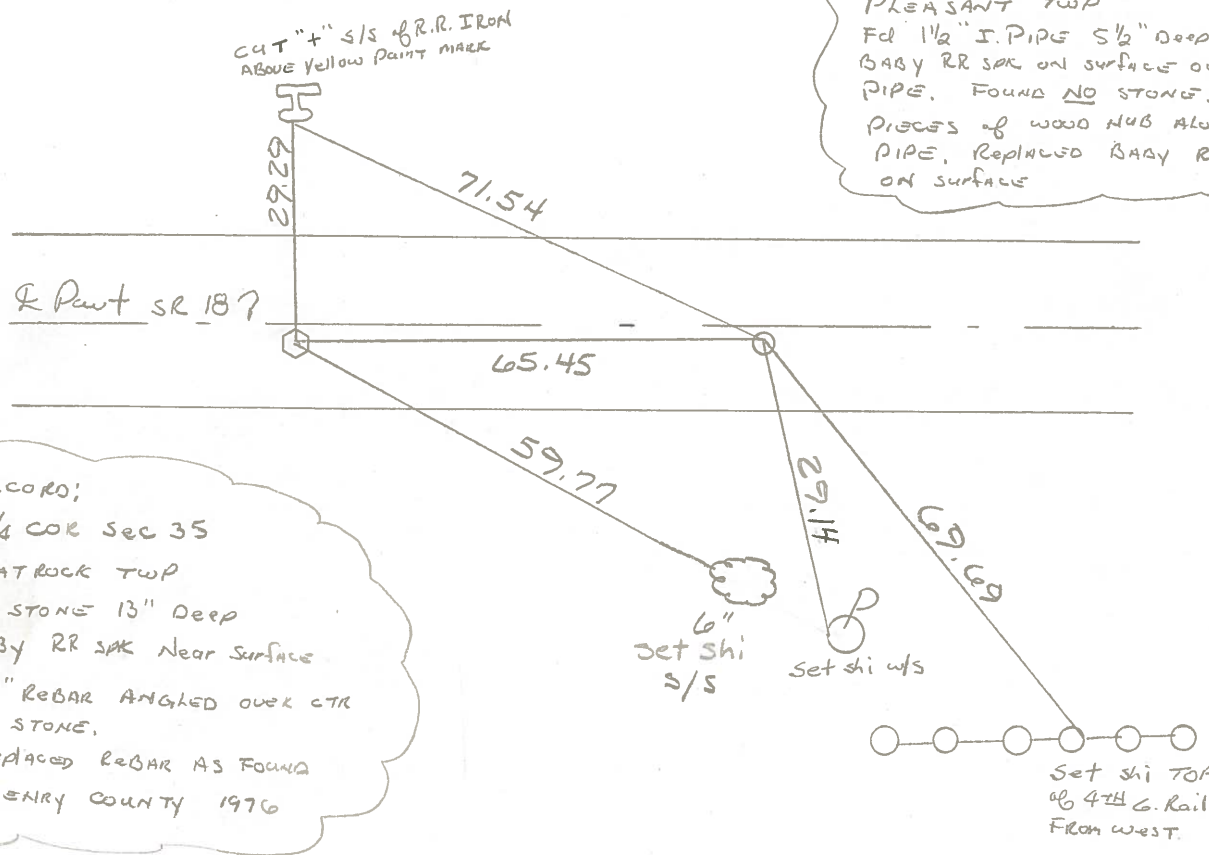 CUT "+" S/S of R.R. IRON
ABOVE Yellow Paint MARK
PLEASANT TWP
Fd 1½" I. PIPE 5½" Deep
BABY RR SPK ON SURFACE
PIPE. FOUND NO STONE.
PIECES of WOOD HUB
PIPE. Replaced BABY
ON SURFACE
29.29
71.54
℄ Pav't SR 18
65.45
59.77
29.14
69.69
1/4 COR Sec 35
TWP
STONE 13" Deep
RR SPK Near Surface
" ReBAR ANGLED OVER CTR
STONE.
ReBAR AS FOUND
COUNTY 1976
6"
Set shi
S/S
Set shi w/s
Set shi TOP
of 4TH G. Rail
FROM WEST.